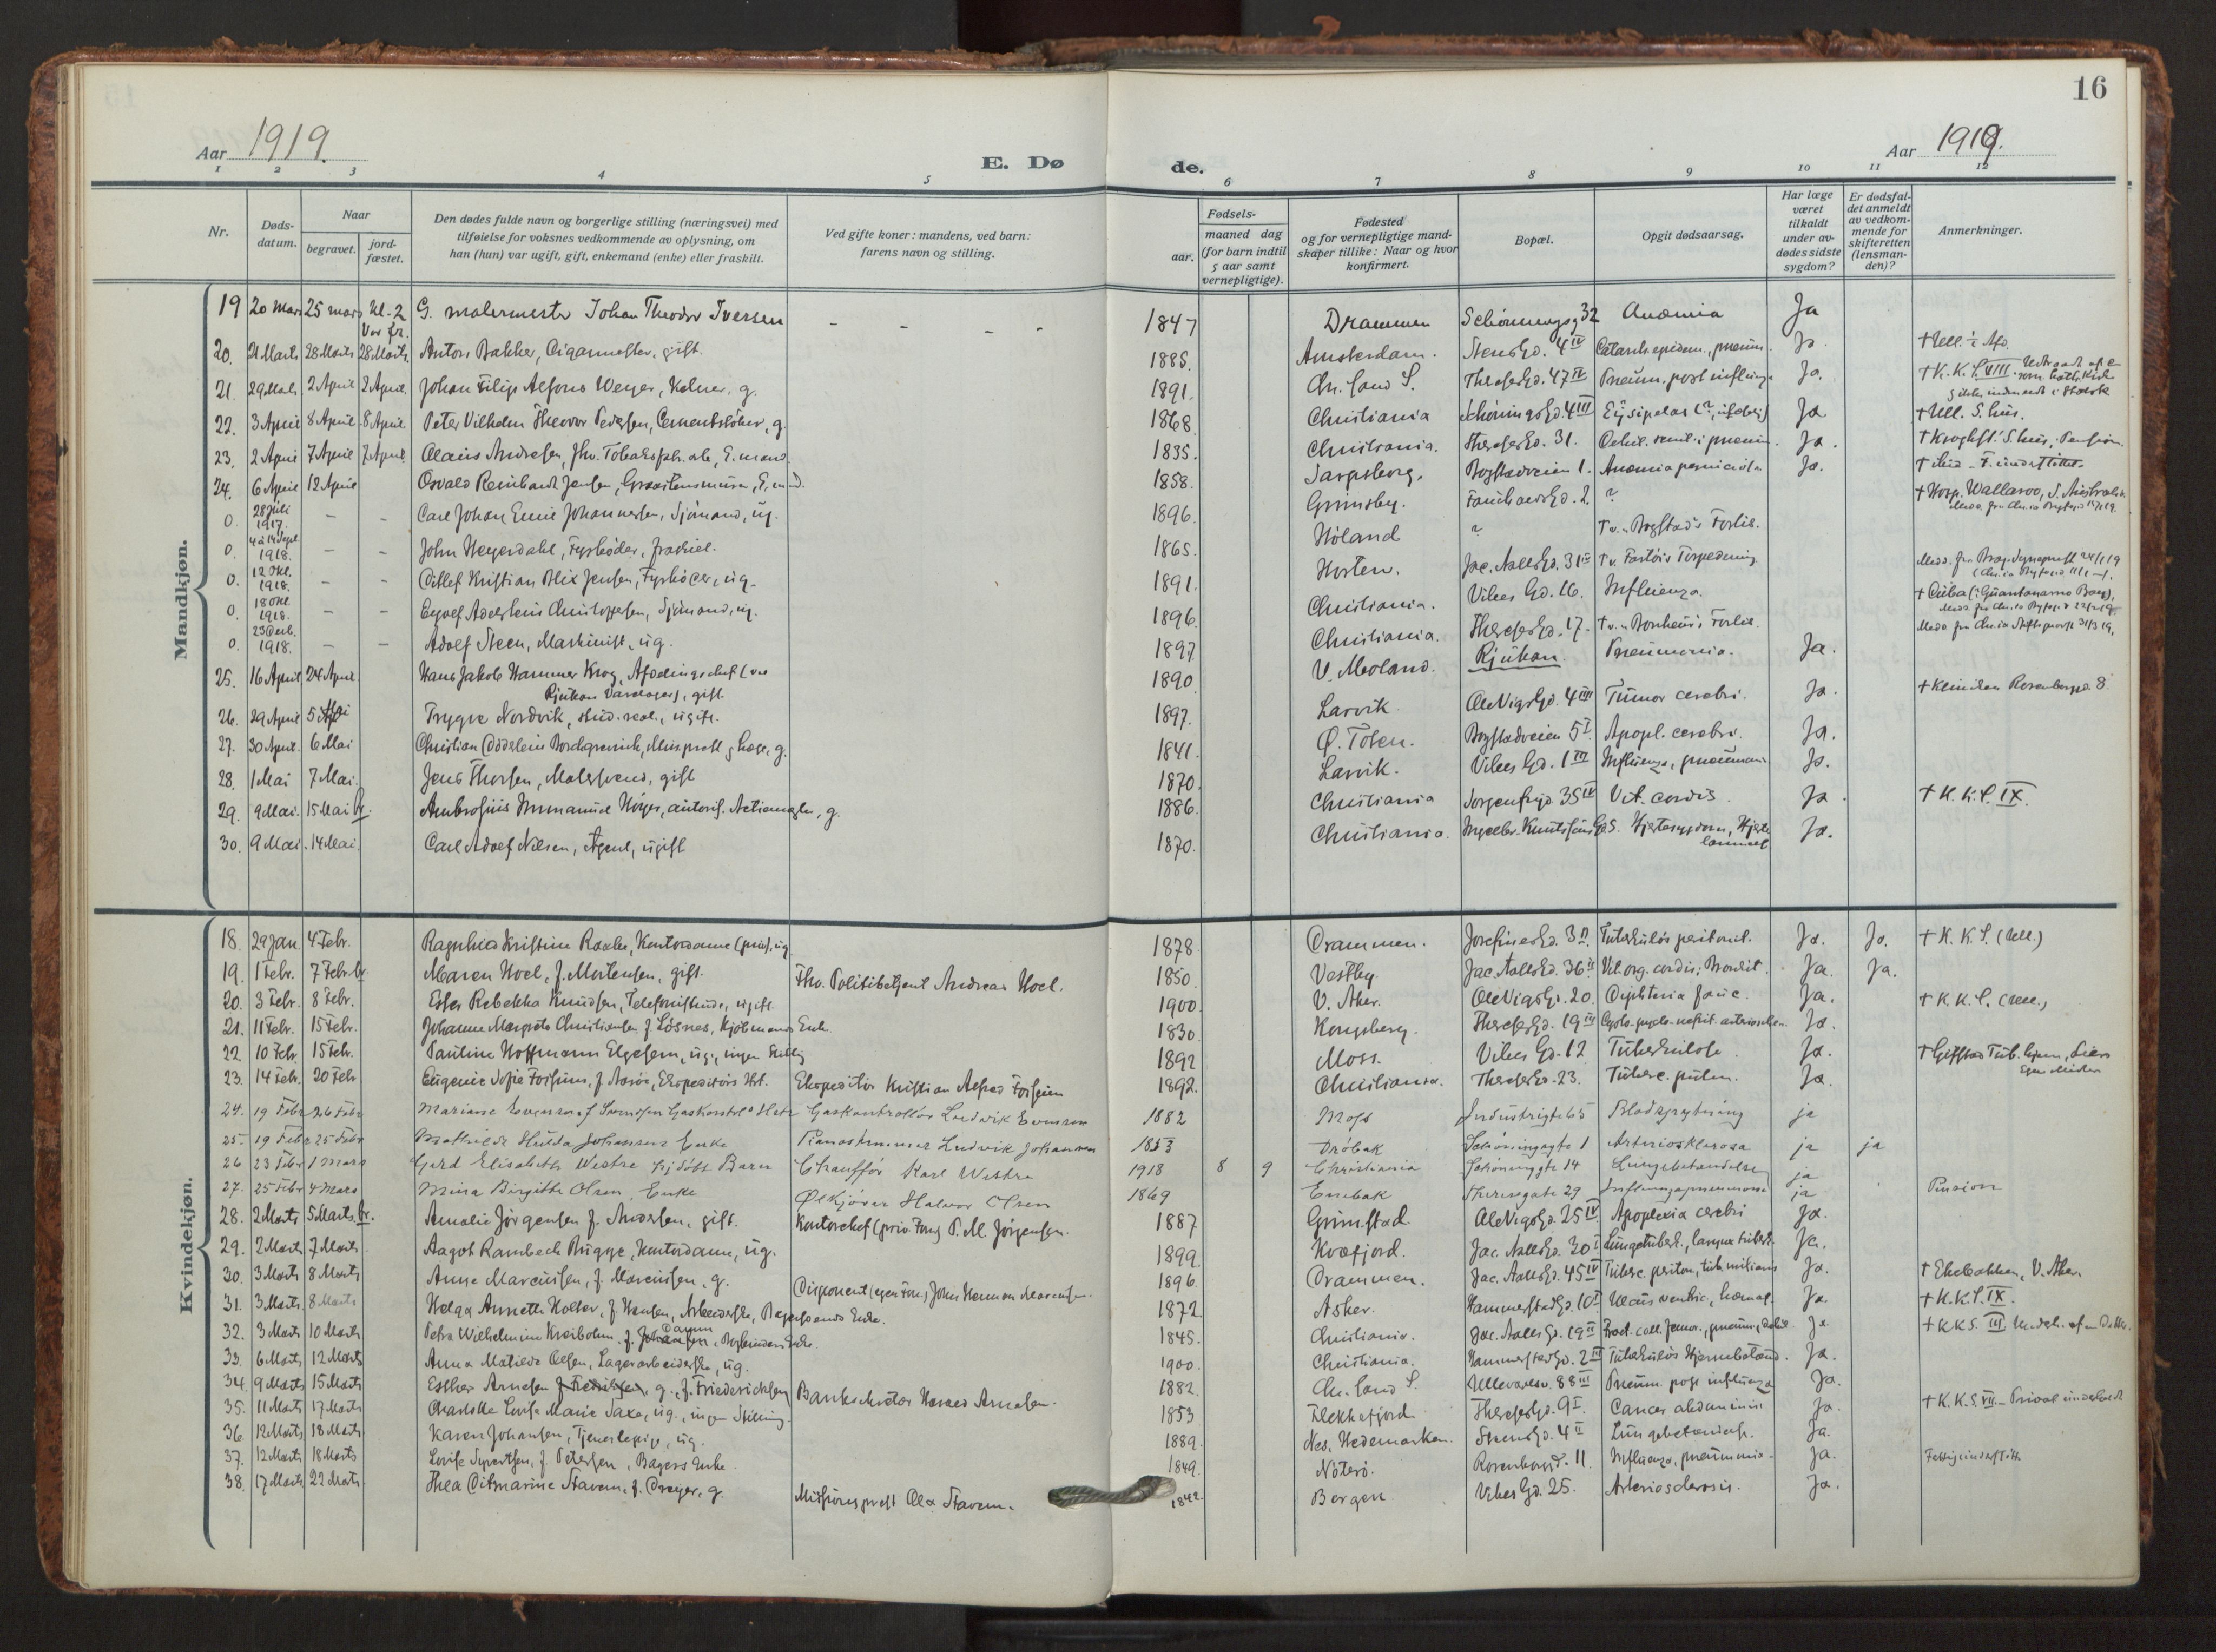 16
Aar 1919.
E. Døde.
Aar 1919.
1 2 3 4 5 6 7 8 9 10 11 12
Nr.
Døds-datum.
Naar
begravet.
jord-fæstet.
Den dødes fulde navn og borgerlige stilling (næringsvei) med
tilføielse for voksnes vedkommende av oplysning, om
han (hun) var ugift, gift, enkemand (enke) eller fraskilt.
Ved gifte koner: mandens, ved barn:
farens navn og stilling.
Fødsels-
aar.
maaned dag
(for barn indtil
5 aar samt
vernepligtige).
Fødested
og for vernepligtige mand-
skaper tillike: Naar og hvor
konfirmert.
Bopæl.
Opgit dødsaarsag.
Har læge
været
tilkaldt
under av-
dødes sidste
sygdom?
Er dødsfal-
det anmeldt
av vedkom-
mende for
skifteretten
(lensman-
den)?
Anmerkninger.
Mandkjøn.
19 20 Mars 25 mars kl. 2 Vor fr. G. malermester Johan Theodor Iversen - - - - 1847 Drammen Schøningsg 32 Anæmia Ja
20. 21 Marts 28 Marts 28 Marts Anton Bakker, Cigarmester, gift. 1885. Amsterdam. Stensgd. 4 IV Catarrh. epidem., pneum. Ja. † Ull.
21. 29 Marts 2 April 2 April. Johan Filip Alfons Weyer, Kelner, g. 1891. Chr.sand S. Theresesgd. 47 IV Pneum. post influenza Ja. † K. K. S. VIII.
22. 3 April 8 April 8 April Peter Vilhelm Theodor Pedersen, Cementstøber, g. 1868 Christiania Schøningsgd. 4 III Ja † Ull. S.hus.
23. 2 April 7 April 7 April. Claus Andresen, fhv. E.mand. 1835. Christiania. Theresesgd. 31. Ja. † Krohgst. S.hus, Pension.
24. 6 April 12 April Osvald Reinhardt Jensen, E.mand. 1858. Sarpsborg. Bogstadveien 1. Anæmia perniciosa Ja.
0. 28 Juli 1917. - - Carl Johan Emil Johannesen, Sjømand, ug. 1896. Grimsby. Fauchaldsgd. 2. ? † Hosp. Wallaroo, S. Australia.
0. 4 à 14 Sept 1918. - - John Heyerdahl, Fyrbøder, fraskilt. 1865. Høland ? Forlis.
0. 12 Okt. 1918. - - Ditlef Kristian Blix Jensen, Fyrbøder, ug. 1891. Horten. Jac. Aallsgd. 31 II
0. 18 Okt. 1918. - - Eyolf Christophersen, Sjømand, ug. 1896. Christiania. Vibes Gd. 16. Influenza. † Cuba (: Guantanamo Bay),
0. 23 Decb. 1918. - - Adolf Steen, Maskinist, ug. 1897 Christiania. Theresesgd. 17. Forlis.
25. 16 April 24 April Hans Jakob Hammer Krog, Afdelingschef (ved
Rjukan Vandlager), gift 1890 V. Moland. Rjukan. Pneumonia. Ja.
26. 29 April 5 Mai Trygve Nordvik, stud. real., ugift. 1897. Larvik Ole Vigsgd. 4 III Tumor cerebri. Ja. † Kliniken Rosenborggd. 8
27. 30 April. 6 Mai Christian Borchgrevink, Misprest & læge, g. 1841. Ø. Toten. Bogstadveien 5 I. Apopl. cerebri. Ja.
28. 1 Mai 7 Mai. Jens Thorsen, Malersvend, gift 1870. Larvik. Vibes Gd. 1 III Influenza, pneumoni Ja.
29. 9 Mai. 15 Mai Ambrosius Immanuel Høyer, autoris. g. 1886. Christiania Sorgenfrigd 35 IV Vit. cordis. Ja † K. K. S. IX.
30. 9 Mai. 14 Mai. Carl Adolf Nilsen, Agent, ugift 1870. Christiania. Hjertesygdom, Hjertelammelse Ja.
Kvindekjøn.
18. 29 Jan. 4 Febr. Ragnhild Kristine Raabe, Kontordame (priv), ug. 1878 Drammen. Josefinesgd. 3 II. Tuberkuløs peritonit. Ja. Ja. † K. K. S. (Ull.)
19. 1 Febr. 7 Febr. Maren Hoel, f. Mortensen, gift. Fhv. Politibetjent Andreas Hoel. 1850. Vestby. Jac. Aallsgd. 36 II Vit. org. cordis; Bronkit. Ja. Ja.
20. 3 Febr. 8 Febr. Ester Rebekka Knudsen, Telefonistinde, ugift. 1900. V. Aker. Ole Vigsgd. 20. Diphteria fauc. Ja. † K. K. S. (Ull.)
21. 11 Febr. 15 Febr. Johanne Margrete Christiansen f. Løsnes, Kjøbmands Enke. 1830. Kongsberg. Theresesgd. 19 III Ja.
22. 10 Febr. 15 Febr. Pauline Hoffmann Elgesem, ug., ingen Stilling 1892 Moss. Vibes Gd. 12 Tuberkulose. Ja.
23. 14 Febr. 20 Febr Eugenie Sofie Forsum, Ekspeditørs Hst. Ekspeditør Kristian Alfred Forsum 1892. Christiania. Theresesgd. 23. Tuberc. pulm. Ja.
24. 19 Febr 26 Febr Marianne Evensen f. Svendsen Gaskontrollør Ludvik Evensen 1882 Moss Industrigt 65 Blodspytning ja
25. 19 Febr 25 Febr Mathilde Hulda Johansen Enke Pianostemmer Ludvik Johansen 1853 Drøbak Schøningsgte 1 Arteriosklerosa ja ja
26 23 Febr 1 Mars Gerd Elisabeth Westre Barn Chauffør Karl Westre 1918 8 9 Christiania Schøninggte 14 Lungebetændelse ja
27. 25 Febr 4 Mars Mina Birgitte Olsen, Enke Ølkjører Halvor Olsen 1869 Enebak Theresegate 29 Influenzapneumoni ja Pension
28. 2 Marts 5 Marts. Amalie Jørgensen f. Andersen, gift. Kontorchef (priv. Forr) P. M. Jørgensen. 1887 Grimstad Ole Vigsgd. 25 IV Apoplexia cerebri Ja.
29. 2 Marts 7 Marts Aagot Rambech Brygge, Kontordame, ug. 1899. Kvæfjord. Jac. Aallsgd. 30 I Ja.
30. 3 Marts 8 Marts Anne Marcussen, f. Marcussen, g. Disponent (egen Forr.) John Herman Marcussen. 1896. Drammen. Jac. Aallsgd. 45 IV Ja. † Ekebakken, V. Aker.
31. 3 Marts. 8 Marts Helga Annette Holter, f. Hansen, Arbeiderske, Enke. 1872. Asker. Hammerstadsgd. 10 I Ulcus ventric., hæmat. Ja. † K. K. S. IX.
32. 3 Marts 10 Marts Petra Wilhelmine Kreibohm, f. Damm, Enke 1845. Christiania. Jac. Aallsgd. 19 II Ja. † K K S. III.
33. 6 Marts 12 Marts Anna Matilde Olsen, Lagerarbeiderske, ug. 1900. Christiania. Hammerstadsgd. 2 III Tuberkuløs Hjernebetænd. Ja.
34. 9 Marts 15 Marts Esther Arnesen g., f. Friederichsen Arnesen. 1882. Chr.sand S. Ullevaalsv. 88 III Pneum. post influenza Ja.
35. 11 Marts 17 Marts Charlotte Lovise Marie Saxe, ug., ingen Stilling. 1853 Flekkefjord Theresesgd. 9 I. Cancer abdominis Ja. † K. K. S. VII.
36. 12 Marts 18 Marts Karen Johansen, Tjenestepige, ug. 1889. Nes, Hedemarken. Stensgd. 4 II Lungebetændelse. Ja.
37. 12 Marts 18 Marts Lovise Syvertsen, f. Petersen, Bagers Enke. 1849. Nøterø. Rosenborggd. 11. Influenza, pneumonia. Ja. Fattigunderstøtt
38. 17 Marts 22 Marts Thea Ditmarine Stavem, f. Dreyer, g. Missionsprest Ole Stavem. 1842 Bergen Vibes Gd. 25. Arteriosclerosis. Ja.